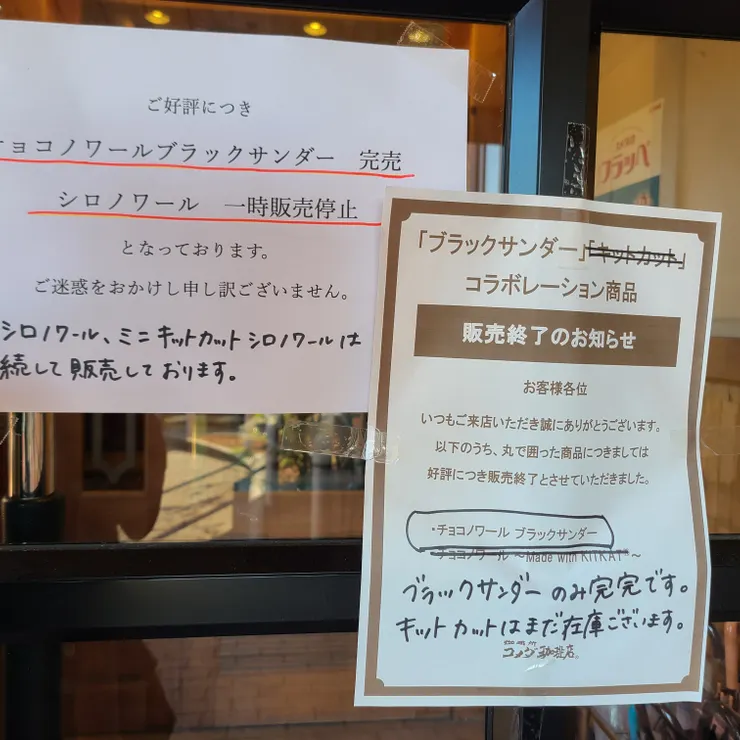 ご好評につき
チョコノワールブラックサンダー 完売
シロノワール 一時販売停止
となっております。
ご迷惑をおかけし申し訳ございません。
シロノワール、ミニキットカットシロノワールは
続して販売しております。
「ブラックサンダー」「キットカット」
コラボレーション商品
販売終了のお知らせ
お客様各位
いつもご来店いただき誠にありがとうございます。
以下のうち、丸で囲った商品につきましては
好評につき販売終了とさせていただきました。
・チョコノワール ブラックサンダー
・チョコノワール ～Made with KITKAT®～
ブラックサンダーのみ完売です。
キットカットはまだ在庫ございます。
コメダ珈琲店